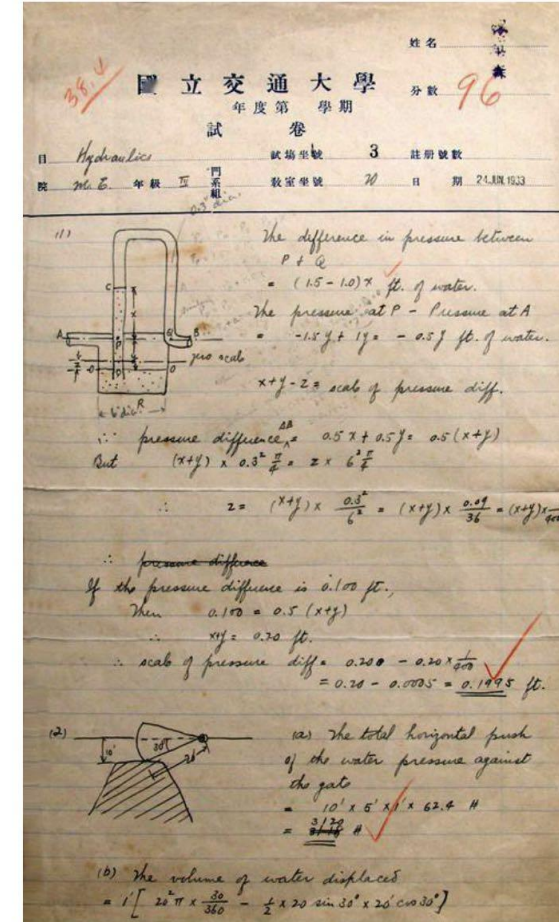 姓名
38.4
國立交通大學
分數 96
年度第 學期
試卷
目 Hydraulics 試場坐號 3 註册號數
院 M.E. 年級 IV 門系組 教室坐號 70 日期 24 JUN 1933
0.3" dia.
(1) The difference in pressure between
P & Q
= (1.5 - 1.0) x ft. of water.
The pressure at P - Pressure at A
= -1.5y + 1y = -0.5y ft. of water.
C
A
P
Q
B
zero scale
O
O
R
6" dia.
x+y-z = scale of pressure diff.
∴ pressure difference AB = 0.5x + 0.5y = 0.5(x+y)
But (x+y) × 0.3² π/4 = z × 6² π/4
∴ z = (x+y) × 0.3²/6² = (x+y) × 0.09/36 = (x+y) × 1/400
∴ pressure difference
If the pressure difference is 0.100 ft.,
Then 0.100 = 0.5 (x+y)
∴ x+y = 0.20 ft.
∴ scale of pressure diff = 0.200 - 0.20 × 1/400
= 0.20 - 0.0005 = 0.1995 ft.
(2) (a) The total horizontal push
10'
30°
20'
of the water pressure against
the gate
= 10' × 5' × 1' × 62.4 #
= 3120 #
(b) The volume of water displaced
= 1' [ 20² π × 30/360 - 1/2 × 20 sin 30° × 20' cos 30° ]